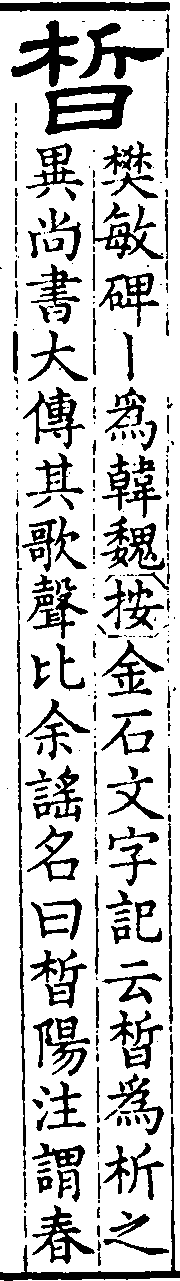 晳
樊敏碑丨爲韓魏按金石文字記云晳爲析之
異尚書大傳其歌聲比余謠名曰晳陽注謂春